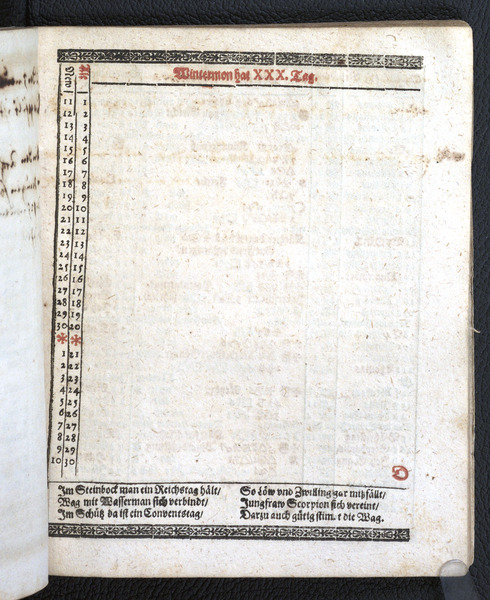 Wintermon hat XXX. Tag.
11 1
12 2
13 3
14 4
15 5
16 6
17 7
18 8
19 9
20 10
21 11
22 12
23 13
24 14
25 15
26 16
27 17
28 18
29 19
30 20
* *
1 21
2 22
3 23
4 24
5 25
6 26
7 27
8 28
9 29
10 30
Im Steinbock man ein Reichstag hält/
Wag mit Wasserman sich verbindt/
Im Schütz da ist ein Conventstag/
So Löw vnd Zwilling gar mißfällt/
Jungfraw Scorpion sich vereint/
Darzu auch gütig stim. t die Wag.